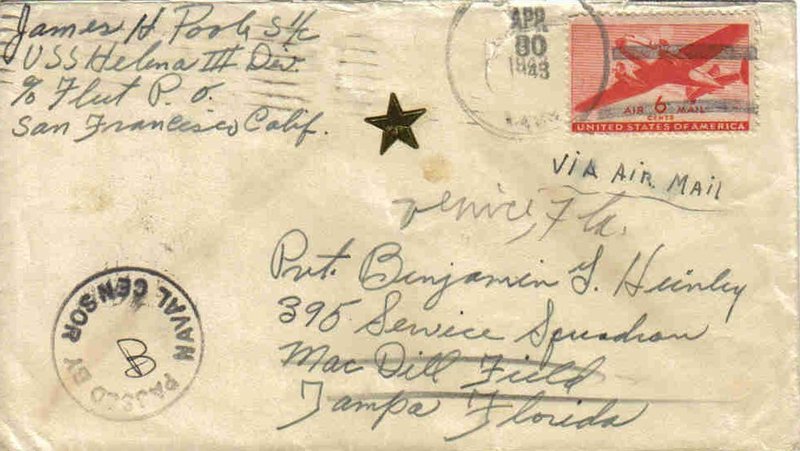 James H Poole S 1/c
USS Helena III Div.
c/o Fleet P. O.
San Francisco Calif.
APR
30
1943
6
CENTS
AIR MAIL
UNITED STATES OF AMERICA
VIA AIR MAIL
Venice, Fla.
Pvt. Benjamin
395 Service Squadron
Mac Dill Field
Tampa Florida
PASSED BY
NAVAL CENSOR
B